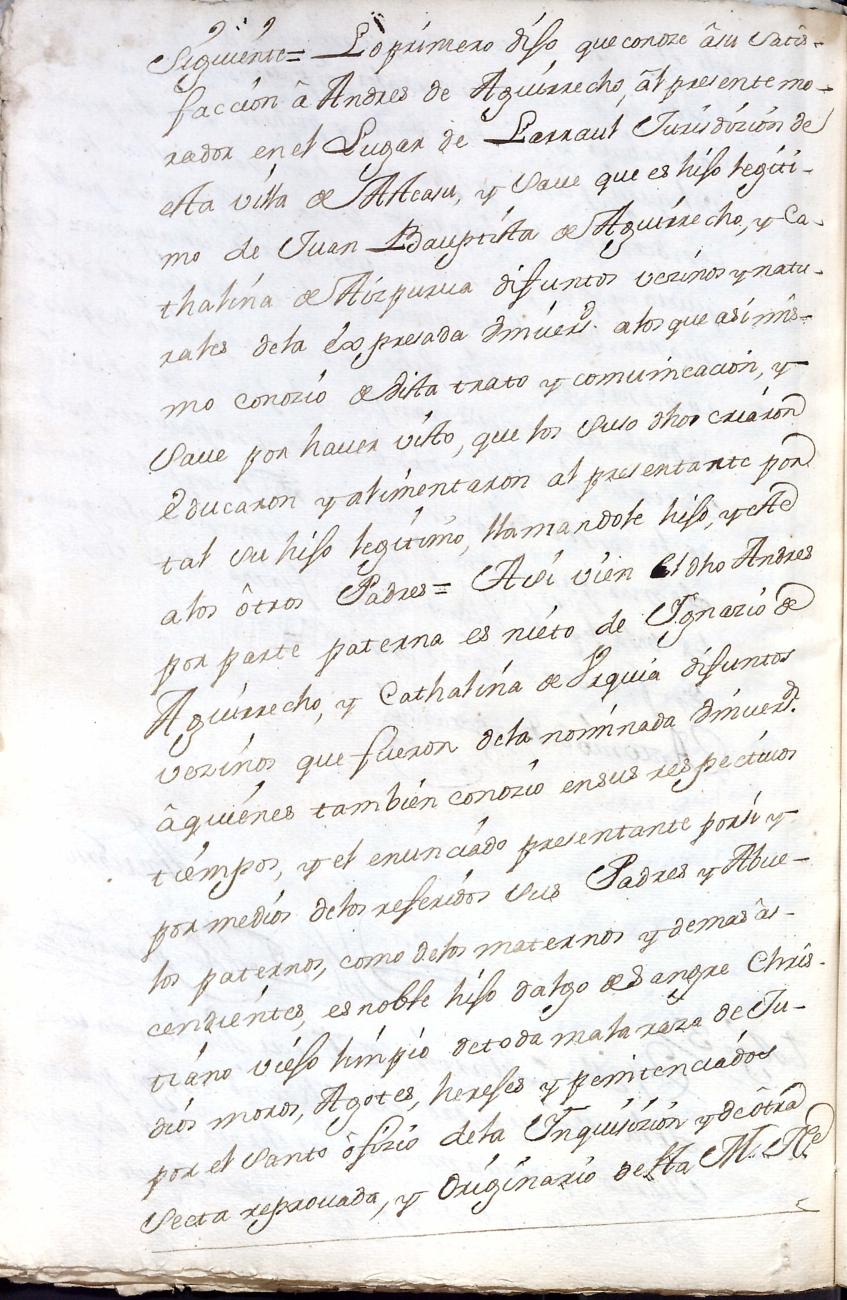 Siguiente= Lo primero dijo que conoze âsu satis-
faccion â Andres de Aguirrecho, âl presente mo-
rador en el Lugar de Larraul Jurisdizion de
esta villa de Alcasu, y save que es hijo legiti-
mo de Juan Bauptista de Aguirrecho, y Ca-
thalina de Aizpurua difuntos vezinos y natu-
rales dela expresada Vnivers.d alos que asi mis-
mo conozio de vista trato y comunicacion, y
save por haver visto, que los suso dhos criaron
educaron y alimentaron al presentante por
tal su hijo legitimo, llamandole hijo, y este
alos ôtros Padres= Asi vien el dho Andres
por parte paterna es nieto de Ignazio de
Aguirrecho, y Cathalina de Vrquia difuntos
vezinos que fueron dela nominada Vnivers.d
âquienes tambien conozio ensus respectivos
tiempos, y el enunciado presentante porsi y
por medios delos referidos sus Padres y Abue-
los paternos, como delos maternos y demas âs-
cendientes, es noble hijo dalgo de sangre Chris-
tiano viejo limpio detoda mala raza de Ju-
dios moros, Agotes, herejes y penitenciados
por el santo ôfizio dela Inquisizion y de ôtra
secta reprovada, y originario desta M. N.e